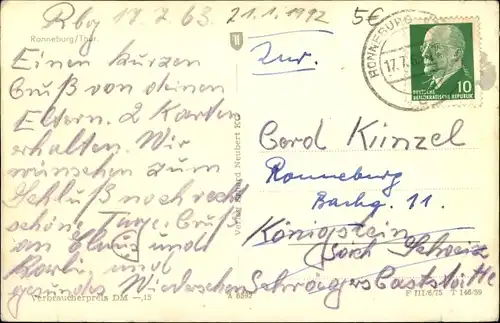 Rbg 17.7.63
21.1.1992
5€
Ronneburg/Thür.
Einen kurzen
Gruß von deinen
Eltern. 2 Karten
erhalten. Wir
wünschen zum
Schluß noch recht
schöne Tage. Gruß
an und
Karli, und
gesundes Wiedersehen
Verbraucherpreis DM —,15
Zur.
Gerd Künzel
Ronneburg
Bachg. 11.
Königstein
Schweiz
Schrägers Gaststätte
RONNEBURG
17.7.
DEUTSCHE
DEMOKRATISCHE REPUBLIK
10
Neubert KG
A 6592
F III/6/75 T 146/59